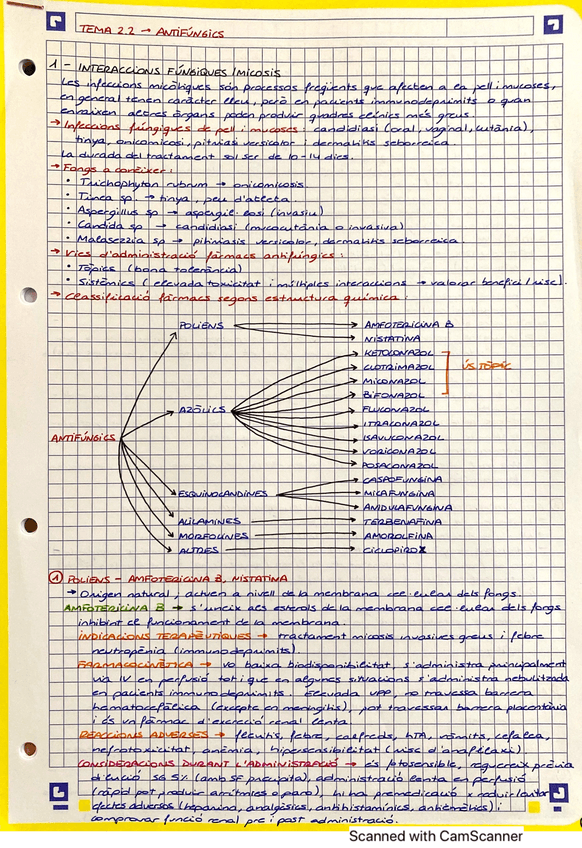 TEMA 2.2 → ANTIFÚNGICS
1 - INTERACCIONS FÚNGIQUES / MICOSIS
Les infeccions micòtiques són processos freqüents que afecten a la pell i mucoses,
en general tenen caràcter lleu, però en pacients immunodeprimits o quan
envaixen altres òrgans poden produir quadres clínics més greus.
→ Infeccions fúngiques de pell i mucoses: candidiasi (oral, vaginal, cutània),
tinya, onicomicosi, pitiriasi versicolor i dermatitis seborreica.
La durada del tractament sol ser de 10-14 dies.
→ Fongs a conèixer:
• Trichophyton rubrum → onicomicosis.
• Tinea sp. → tinya, peu d'atleta.
• Aspergillus sp → aspergil·losi (invasiu)
• Candida sp → candidiasi (mucocutània o invasiva)
• Malassezzia sp → pitiriasis versicolor, dermatitis seborreica.
→ Vies d'administració fàrmacs antifúngics:
• Tòpics (bona tolerància)
• Sistèmics (elevada toxicitat i múltiples interaccions → valorar benefici/risc).
→ Classificació fàrmacs segons estructura química:
POLIENS
AMFOTERICINA B
NISTATINA
KETOCONAZOL
CLOTRIMAZOL
ÚS TÒPIC
MICONAZOL
BIFONAZOL
AZÒLICS
FLUCONAZOL
ITRACONAZOL
ANTIFÚNGICS
ISAVUCONAZOL
VORICONAZOL
POSACONAZOL
CASPOFUNGINA
ESQUINOCANDINES
MICAFUNGINA
ANIDULAFUNGINA
ALILAMINES
TERBENAFINA
MORFOLINES
AMOROLFINA
ALTRES
CICLOPIROX
1 POLIENS - AMFOTERICINA B, NISTATINA
→ Origen natural, actuen a nivell de la membrana cel·lular dels fongs.
AMFOTERICINA B → s'uneix als esterols de la membrana cel·lular dels fongs
inhibint el funcionament de la membrana.
INDICACIONS TERAPÈUTIQUES → tractament micosis invasives greus i febre
neutropènia (immunodeprimits).
FARMACOCINÈTICA → VO baixa biodisponibilitat, s'administra principalment
via IV en perfusió tot i que en algunes situacions s'administra nebulitzada
en pacients immunodeprimits. Elevada UPP, no travessa barrera
hematocefàlica (excepte en meningitis), pot travessar barrera placentària
i és un fàrmac d'excreció renal lenta.
REACCIONS ADVERSES → flebitis, febre, calfreds, hTA, vòmits, cefalea,
nefrotoxicitat, anèmia, hipersensibilitat (risc d'anafilaxi)
CONSIDERACIONS DURANT L'ADMINISTRACIÓ → és fotosensible, requereix prèvia
dilució SG 5% (amb SF precipita), administració lenta en perfusió
(ràpid pot produir arítmies o paro), hi ha premedicació x reduir/evitar
efectes adversos (heparina, analgèsics, antihistamínics, antiemètics) i
comprovar funció renal pre i post administració.
Scanned with CamScanner